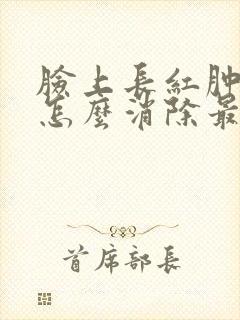 臉上長紅肿
怎麼消除最
首席部長